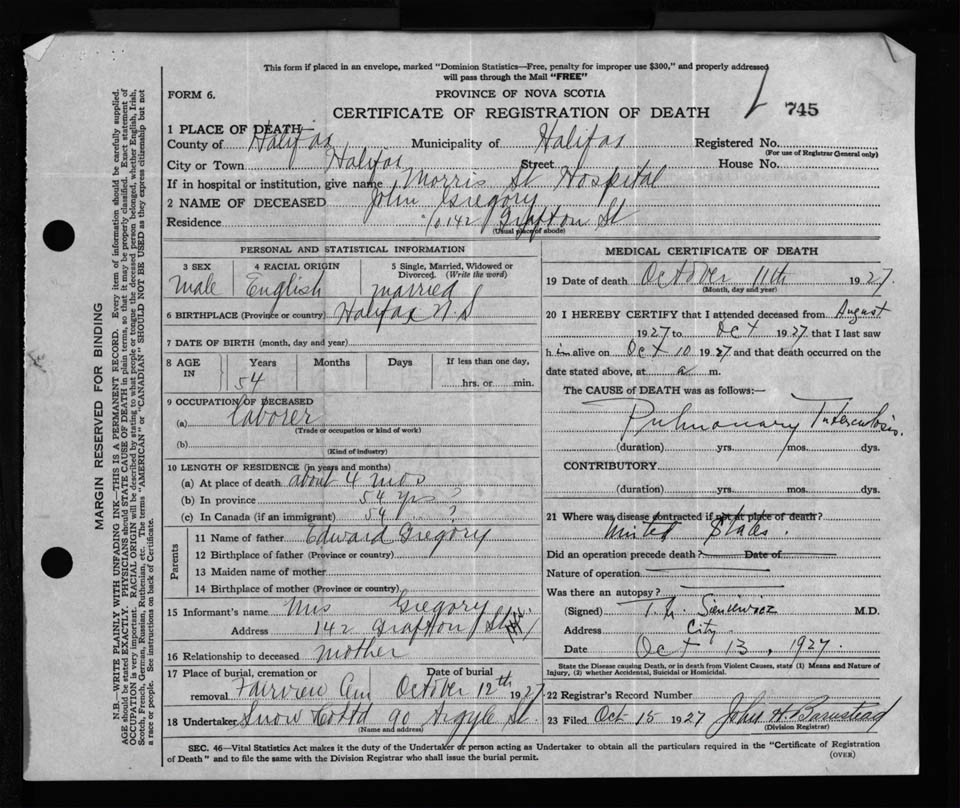 This form if placed in an envelope, marked "Dominion Statistics—Free, penalty for improper use $300," and properly addressed
will pass through the Mail "FREE"
FORM 6. PROVINCE OF NOVA SCOTIA
CERTIFICATE OF REGISTRATION OF DEATH 745
1 PLACE OF DEATH—
County of Halifax Municipality of Halifax Registered No.
(For use of Registrar General only)
City or Town Halifax Street House No.
If in hospital or institution, give name Morris St Hospital
2 NAME OF DECEASED John Gregory
Residence 142 Grafton St
(Usual place of abode)
PERSONAL AND STATISTICAL INFORMATION
3 SEX 4 RACIAL ORIGIN 5 Single, Married, Widowed or
Divorced. (Write the word)
Male English married
6 BIRTHPLACE (Province or country) Halifax N.S
7 DATE OF BIRTH (month, day and year)
8 AGE IN Years Months Days If less than one day,
54 hrs. or min.
9 OCCUPATION OF DECEASED
(a) laborer
(Trade or occupation or kind of work)
(b)
(Kind of industry)
10 LENGTH OF RESIDENCE (in years and months)
(a) At place of death about 4 mos
(b) In province 54 yrs ?
(c) In Canada (if an immigrant) 54 ?
Parents
11 Name of father Edward Gregory
12 Birthplace of father (Province or country)
13 Maiden name of mother
14 Birthplace of mother (Province or country)
15 Informant's name Mrs Gregory
Address 142 Grafton St
16 Relationship to deceased mother
17 Place of burial, cremation or Date of burial
removal Fairview Cem October 12th 1927
18 Undertaker Snow Co Ltd 90 Argyle St.
(Name and address)
MEDICAL CERTIFICATE OF DEATH
19 Date of death October 11th 1927
(Month, day and year)
20 I HEREBY CERTIFY that I attended deceased from August
1927 to Oct 1927 that I last saw
him alive on Oct 10 1927 and that death occurred on the
date stated above, at a m.
The CAUSE of DEATH was as follows:—
Pulmonary Tuberculosis.
(duration) yrs. mos. dys.
CONTRIBUTORY
(duration) yrs. mos. dys.
21 Where was disease contracted if not at place of death?
United States.
Did an operation precede death? Date of
Nature of operation
Was there an autopsy?
(Signed) M.D.
Address City
Date Oct 13, 1927.
State the Disease causing Death, or in death from Violent Causes, state (1) Means and Nature of
Injury, (2) whether Accidental, Suicidal or Homicidal.
22 Registrar's Record Number
23 Filed Oct 15 1927 John H Barnstead
(Division Registrar)
SEC. 46—Vital Statistics Act makes it the duty of the Undertaker or person acting as Undertaker to obtain all the particulars required in the "Certificate of Registration
of Death" and to file the same with the Division Registrar who shall issue the burial permit. (OVER)
MARGIN RESERVED FOR BINDING
N.B.—WRITE PLAINLY WITH UNFADING INK—THIS IS A PERMANENT RECORD. Every item of information should be carefully supplied.
AGE should be stated EXACTLY. PHYSICIANS should STATE CAUSE OF DEATH in plain terms, so that it may be properly classified. Exact statement of
OCCUPATION is very important. RACIAL ORIGIN will be described by stating to what people or tongue the deceased person belonged, whether English, Irish,
Scotch, French, German, Russian, Ruthenian, etc. The terms "AMERICAN" or "CANADIAN" SHOULD NOT BE USED as they express citizenship but not
a race or people. See instructions on back of Certificate.